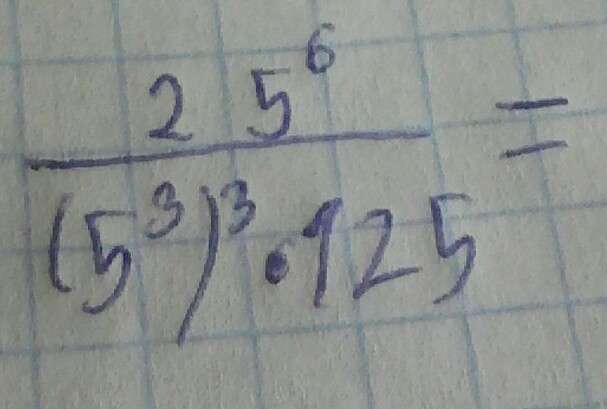 25⁶ =
(5³)³·125